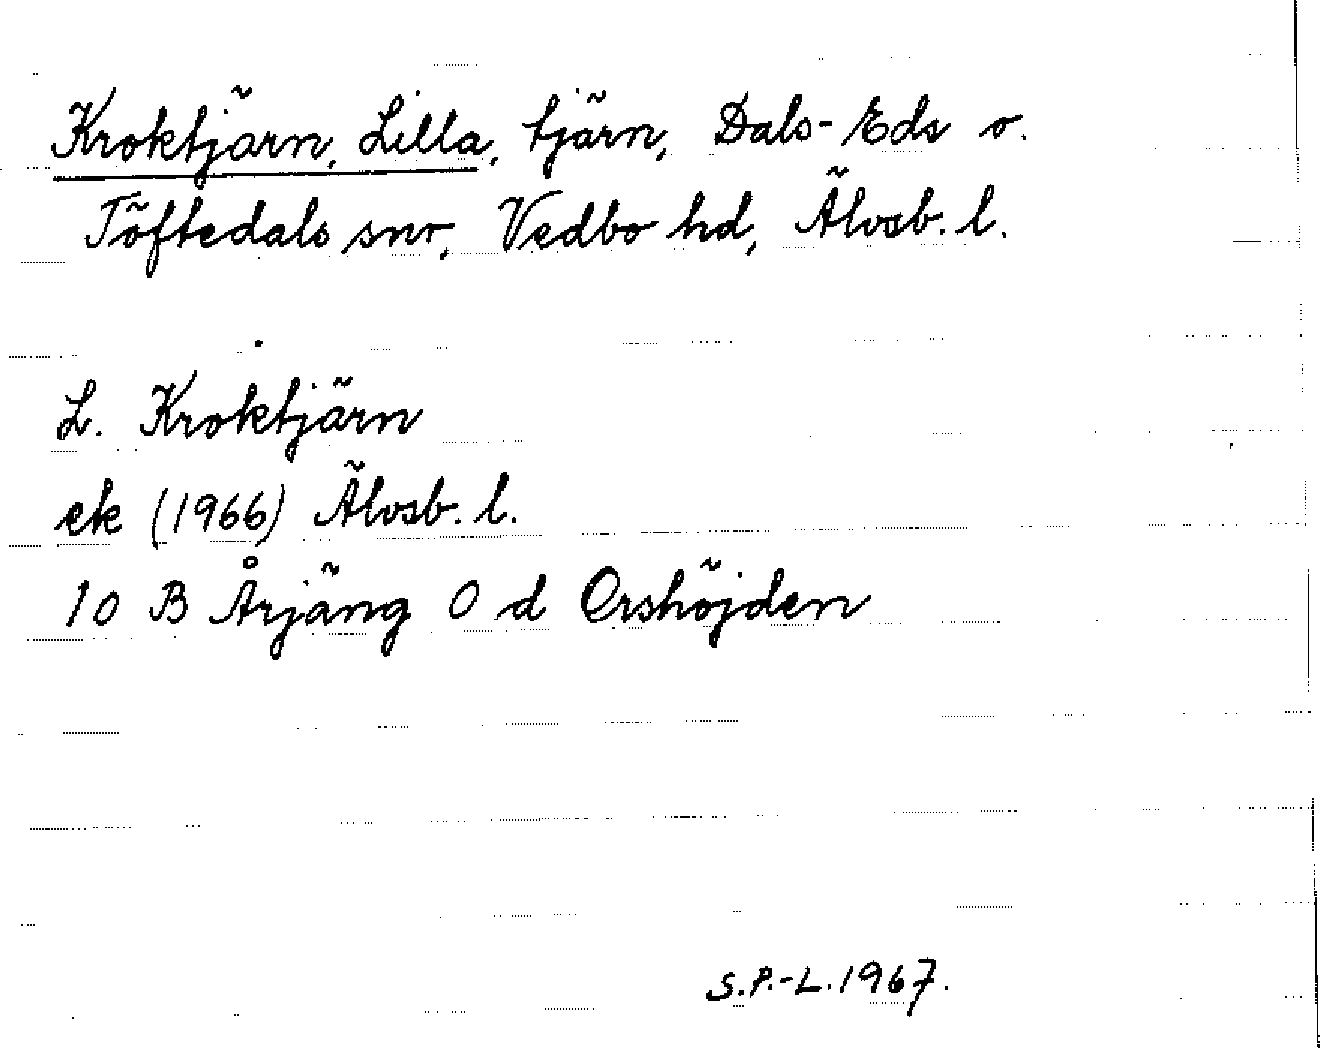 Kroktjärn, Lilla, tjärn, Dals-Eds o.
Töftedals snr, Vedbo hd, Älvsb. l.
L. Kroktjärn
ek (1966) Älvsb. l.
10 B Årjäng 0 d Orshöjden
S.P.-L. 1967.